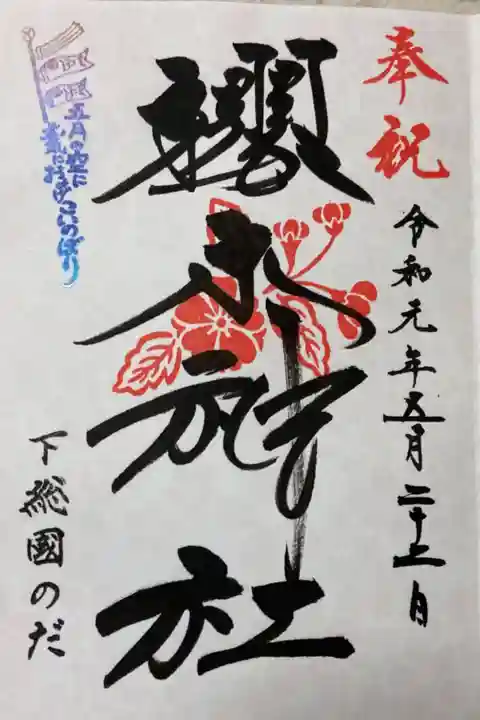 奉祝
令和元年五月二十二日
櫻木神社
下総國のだ
五月の空に
こいのぼり